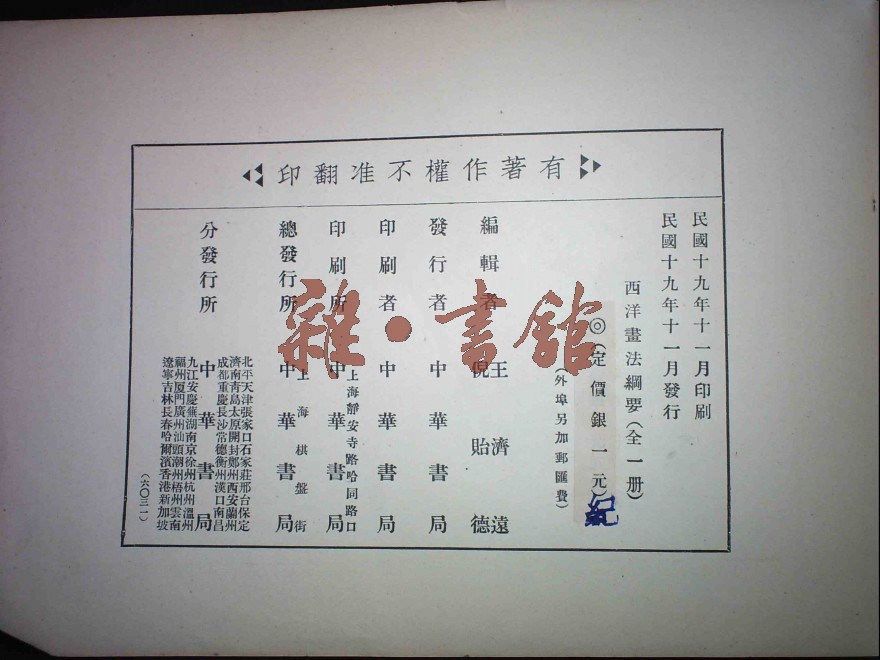 有著作權不准翻印
民國十九年十一月印刷
民國十九年十一月發行
西洋畫法綱要(全一册)
◎(定價銀一元)
紀
(外埠另加郵匯費)
編輯者 王濟遠
倪貽德
發行者 中華書局
印刷者 中華書局
上海靜安寺路哈同路口
印刷所 中華書局
上海棋盤街
總發行所 中華書局
分發行所 中華書局
北平天津張家口石家莊邢台保定
濟南靑島太原開封鄭州西安蘭州
成都重慶長沙常德衡州漢口南昌
九江安慶蕪湖南京徐州杭州溫州
福州厦門廣州汕頭潮州梧州雲南
遼寧吉林長春哈爾濱香港新加坡
(六〇三一)
雜·書館